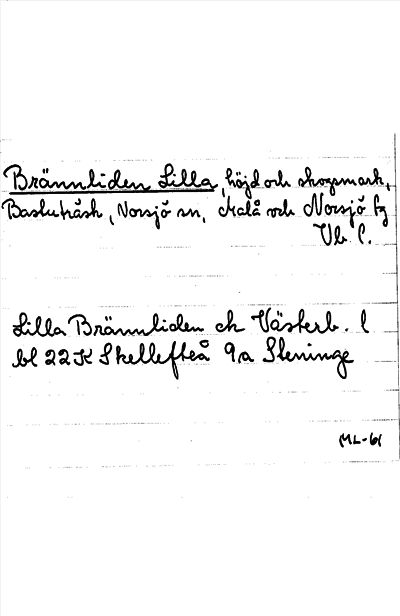 Brännliden Lilla, höjd och skogsmark,
Bastuträsk, Norsjö sn, Malå och Norsjö tg
Vb l.
Lilla Brännliden ek Västerb. l
bl 22K Skellefteå 9a Sleninge
ML-61